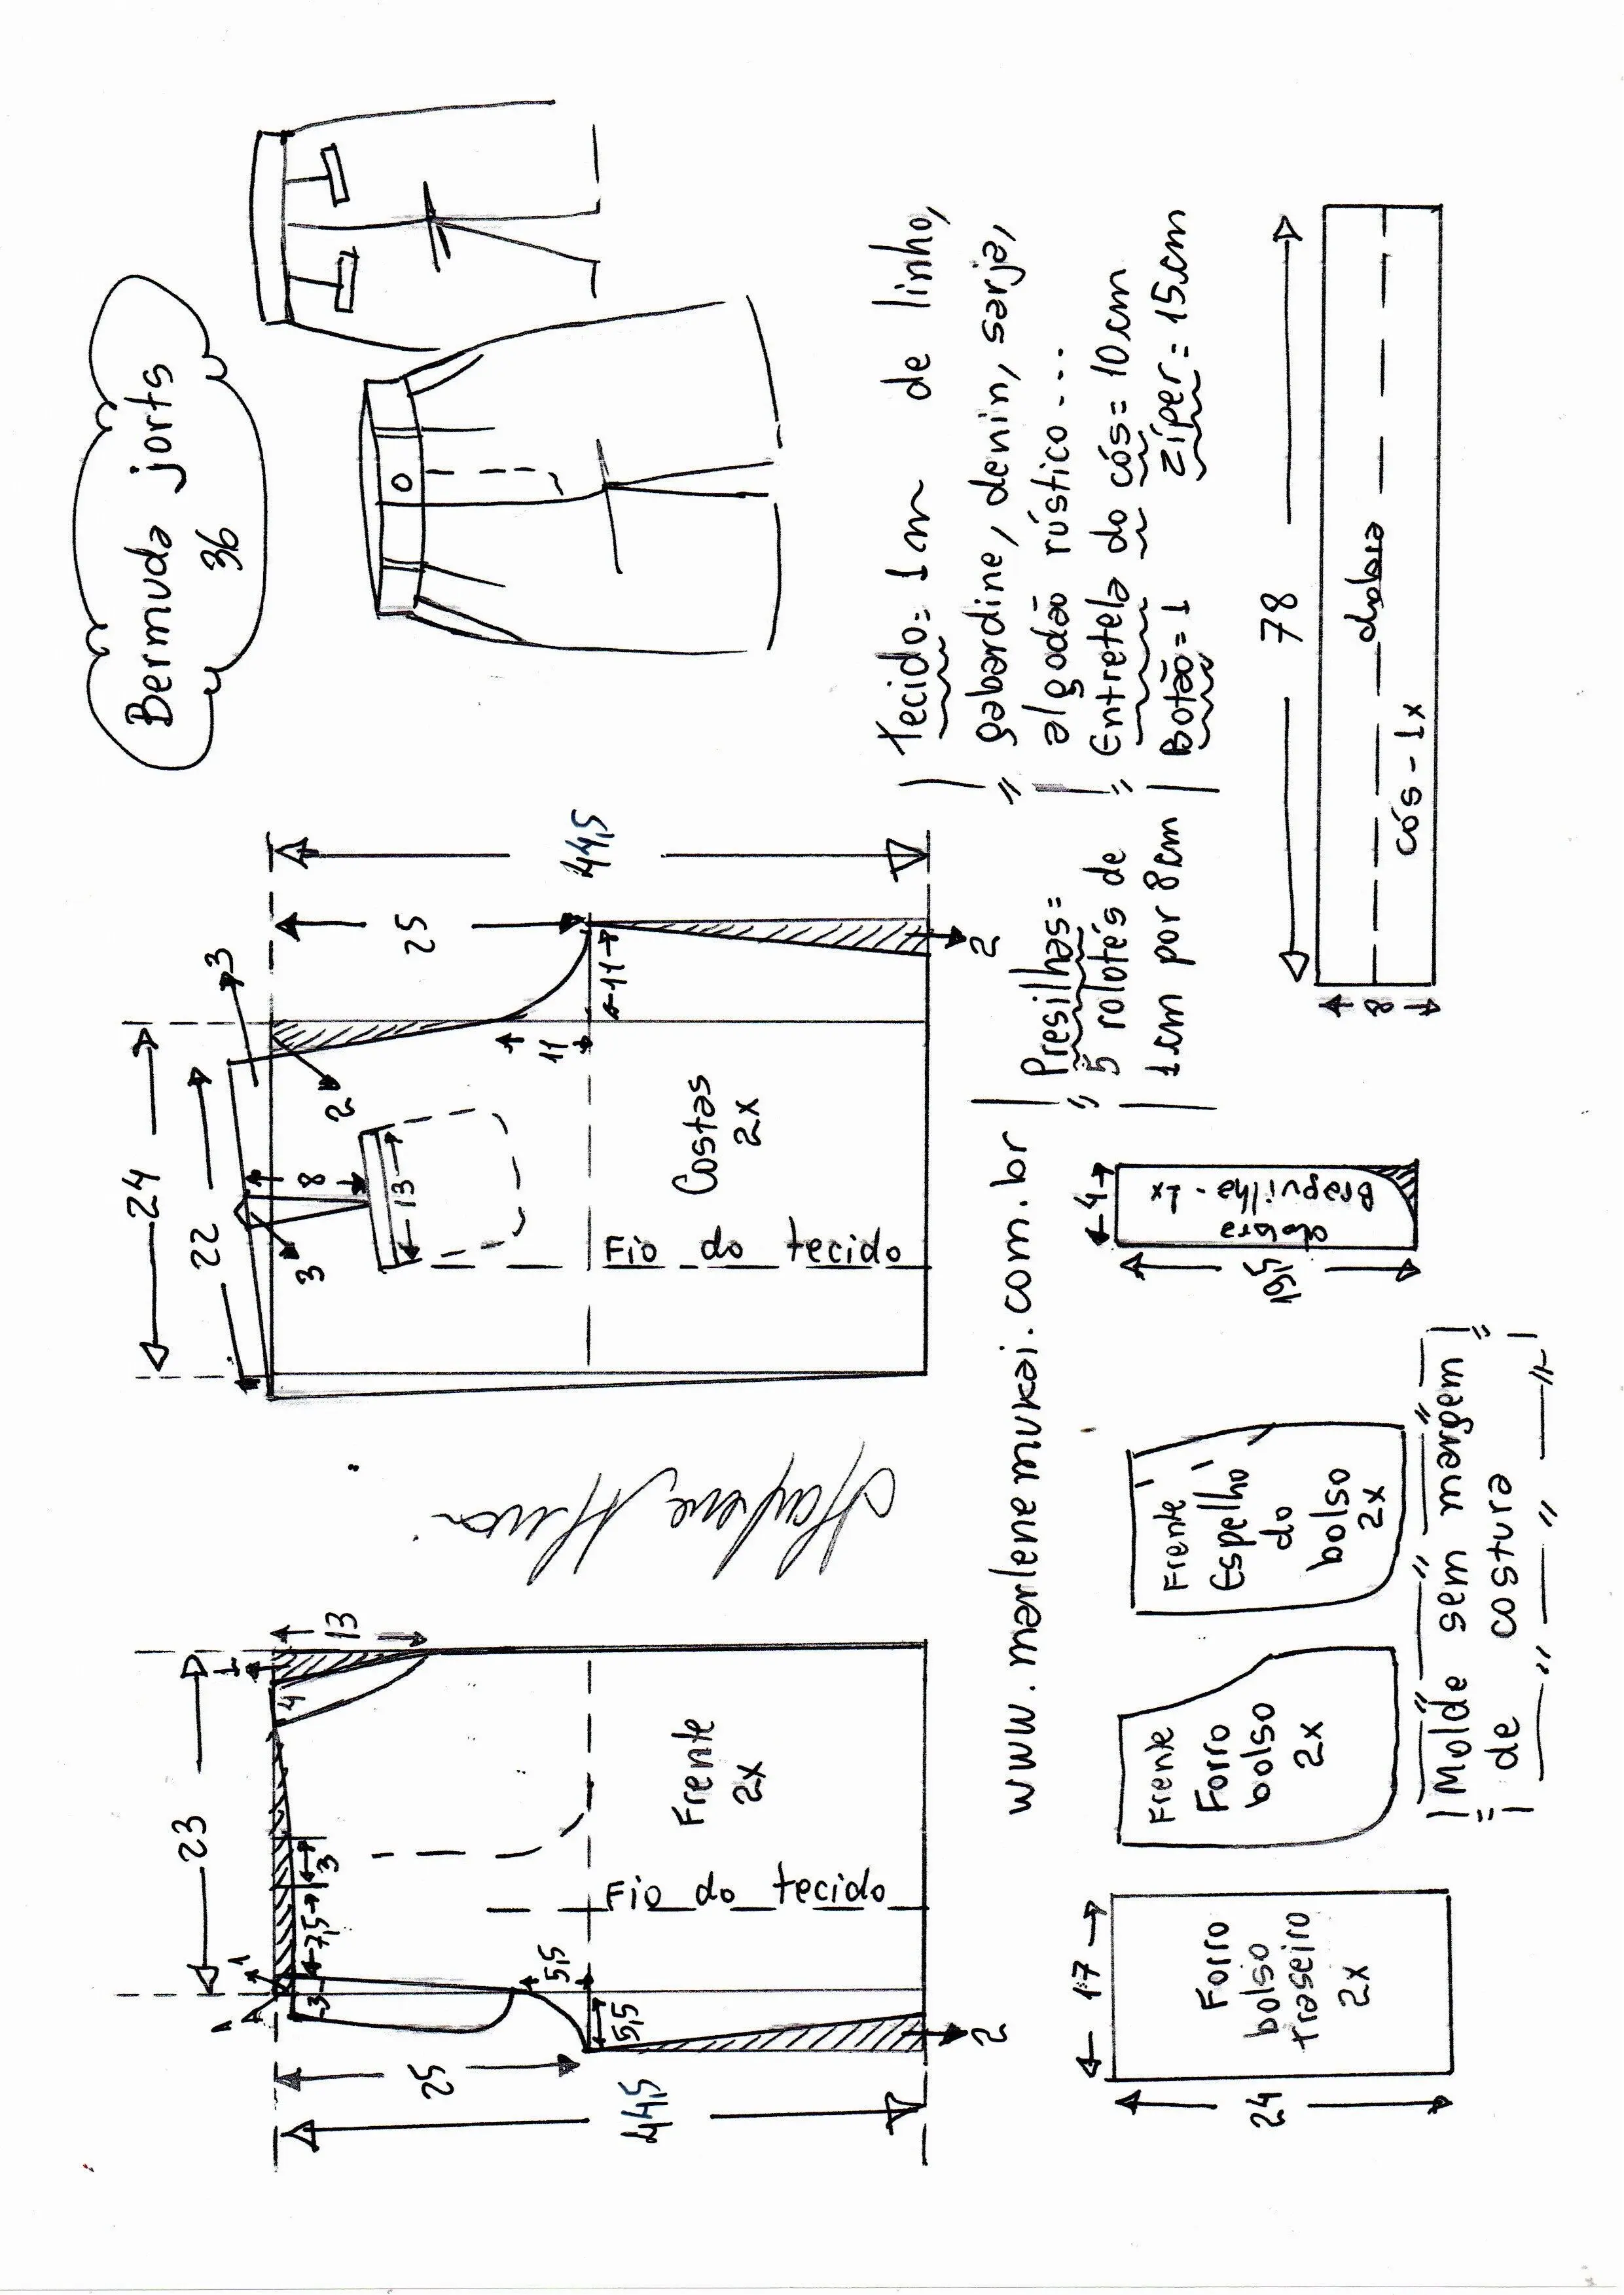 Bermuda jorts
36
23
1
4
13
1
A
3
7,5
3
5,5
5,5
25
44,5
2
Frente
2x
Fio do tecido
24
22
3
3
2
8
13
11
11
25
44,5
2
Costas
2x
Fio do tecido
Tecido = 1m de linho,
gabardine, denin, sarja,
algodão rústico....
Entretela do cós = 10cm
Botão = 1 Zíper = 15cm
www.marlenemukai.com.br
Presilhas =
5 rolotés de
1cm por 8cm
17
24
Forro
bolso
traseiro
2x
Frente
Forro
bolso
2x
Frente
Espelho
do
bolso
2x
4
19,5
Braguilha - 1x
dobra
78
8
dobra
cós - 1x
Molde sem margem
de costura